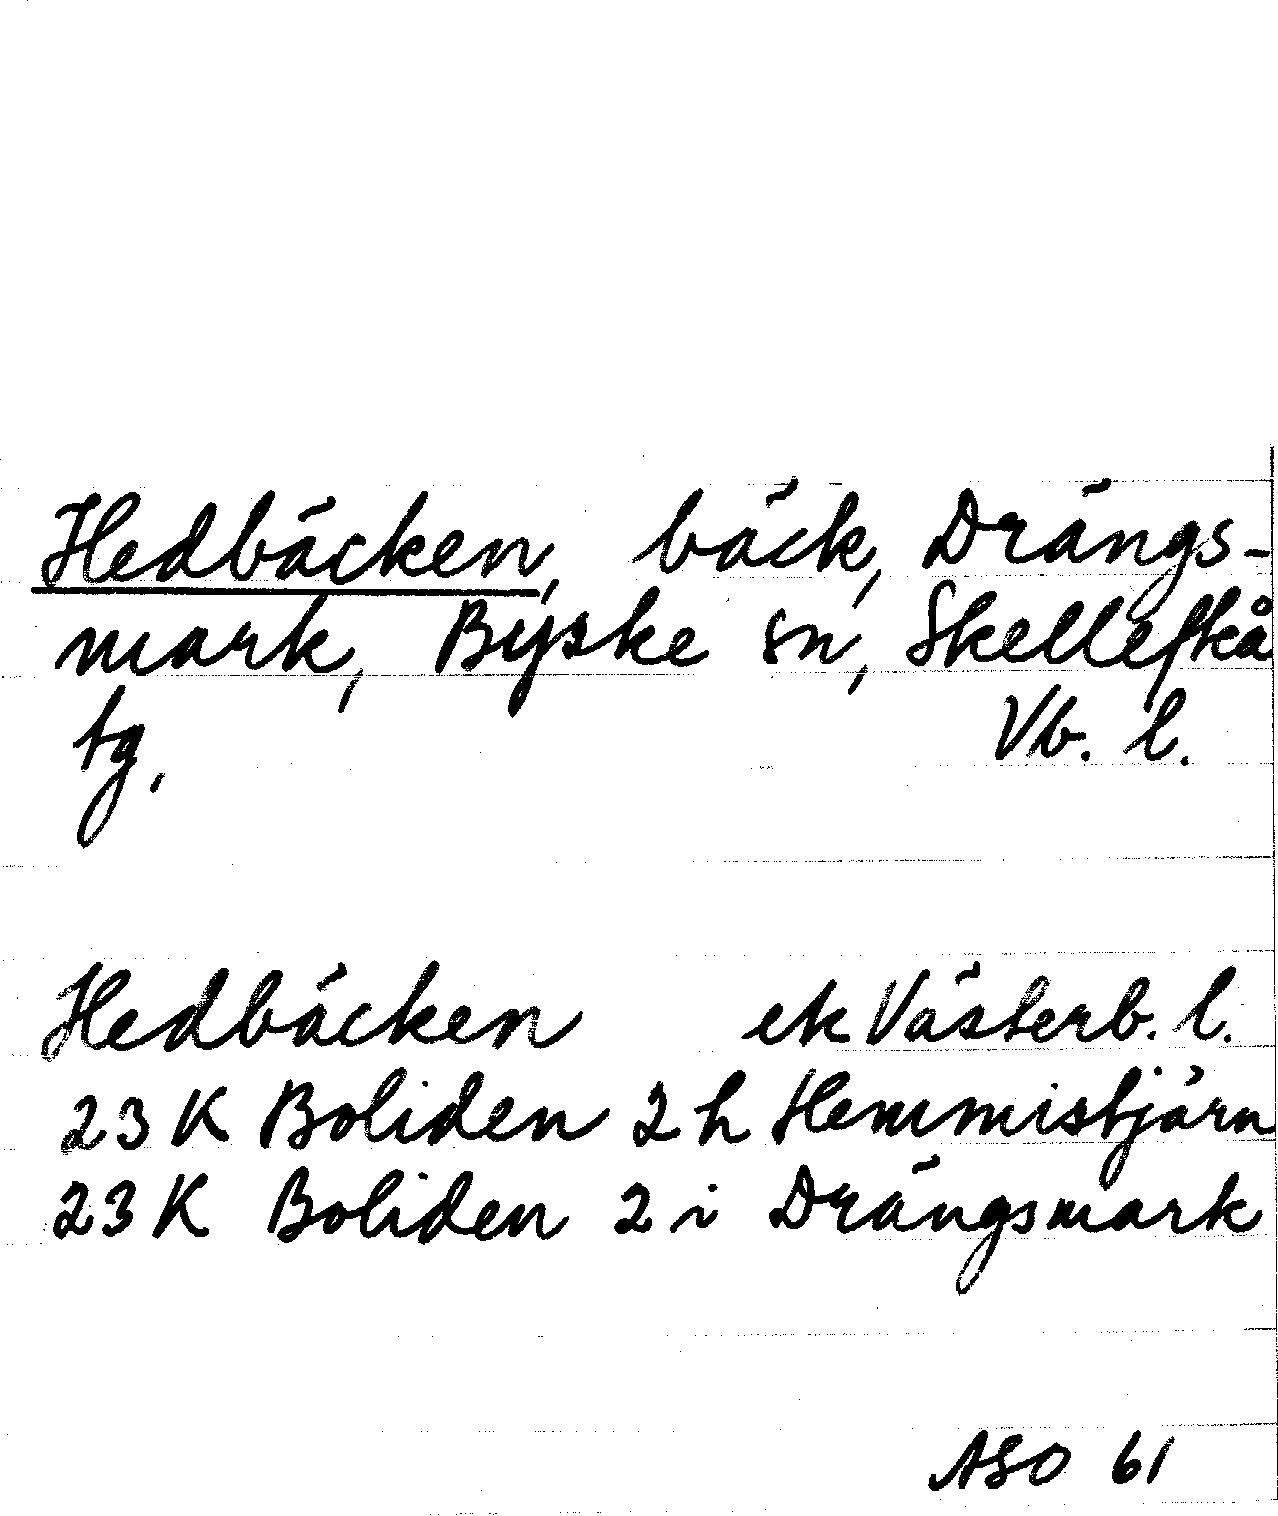 Hedbäcken, bäck, Drängs-
mark, Byske sn, Skellefteå
tg, Vb. l.
Hedbäcken ek Västerb. l.
23 K Boliden 2 h Hemmistjärn
23 K Boliden 2 i Drängsmark
ASO 61